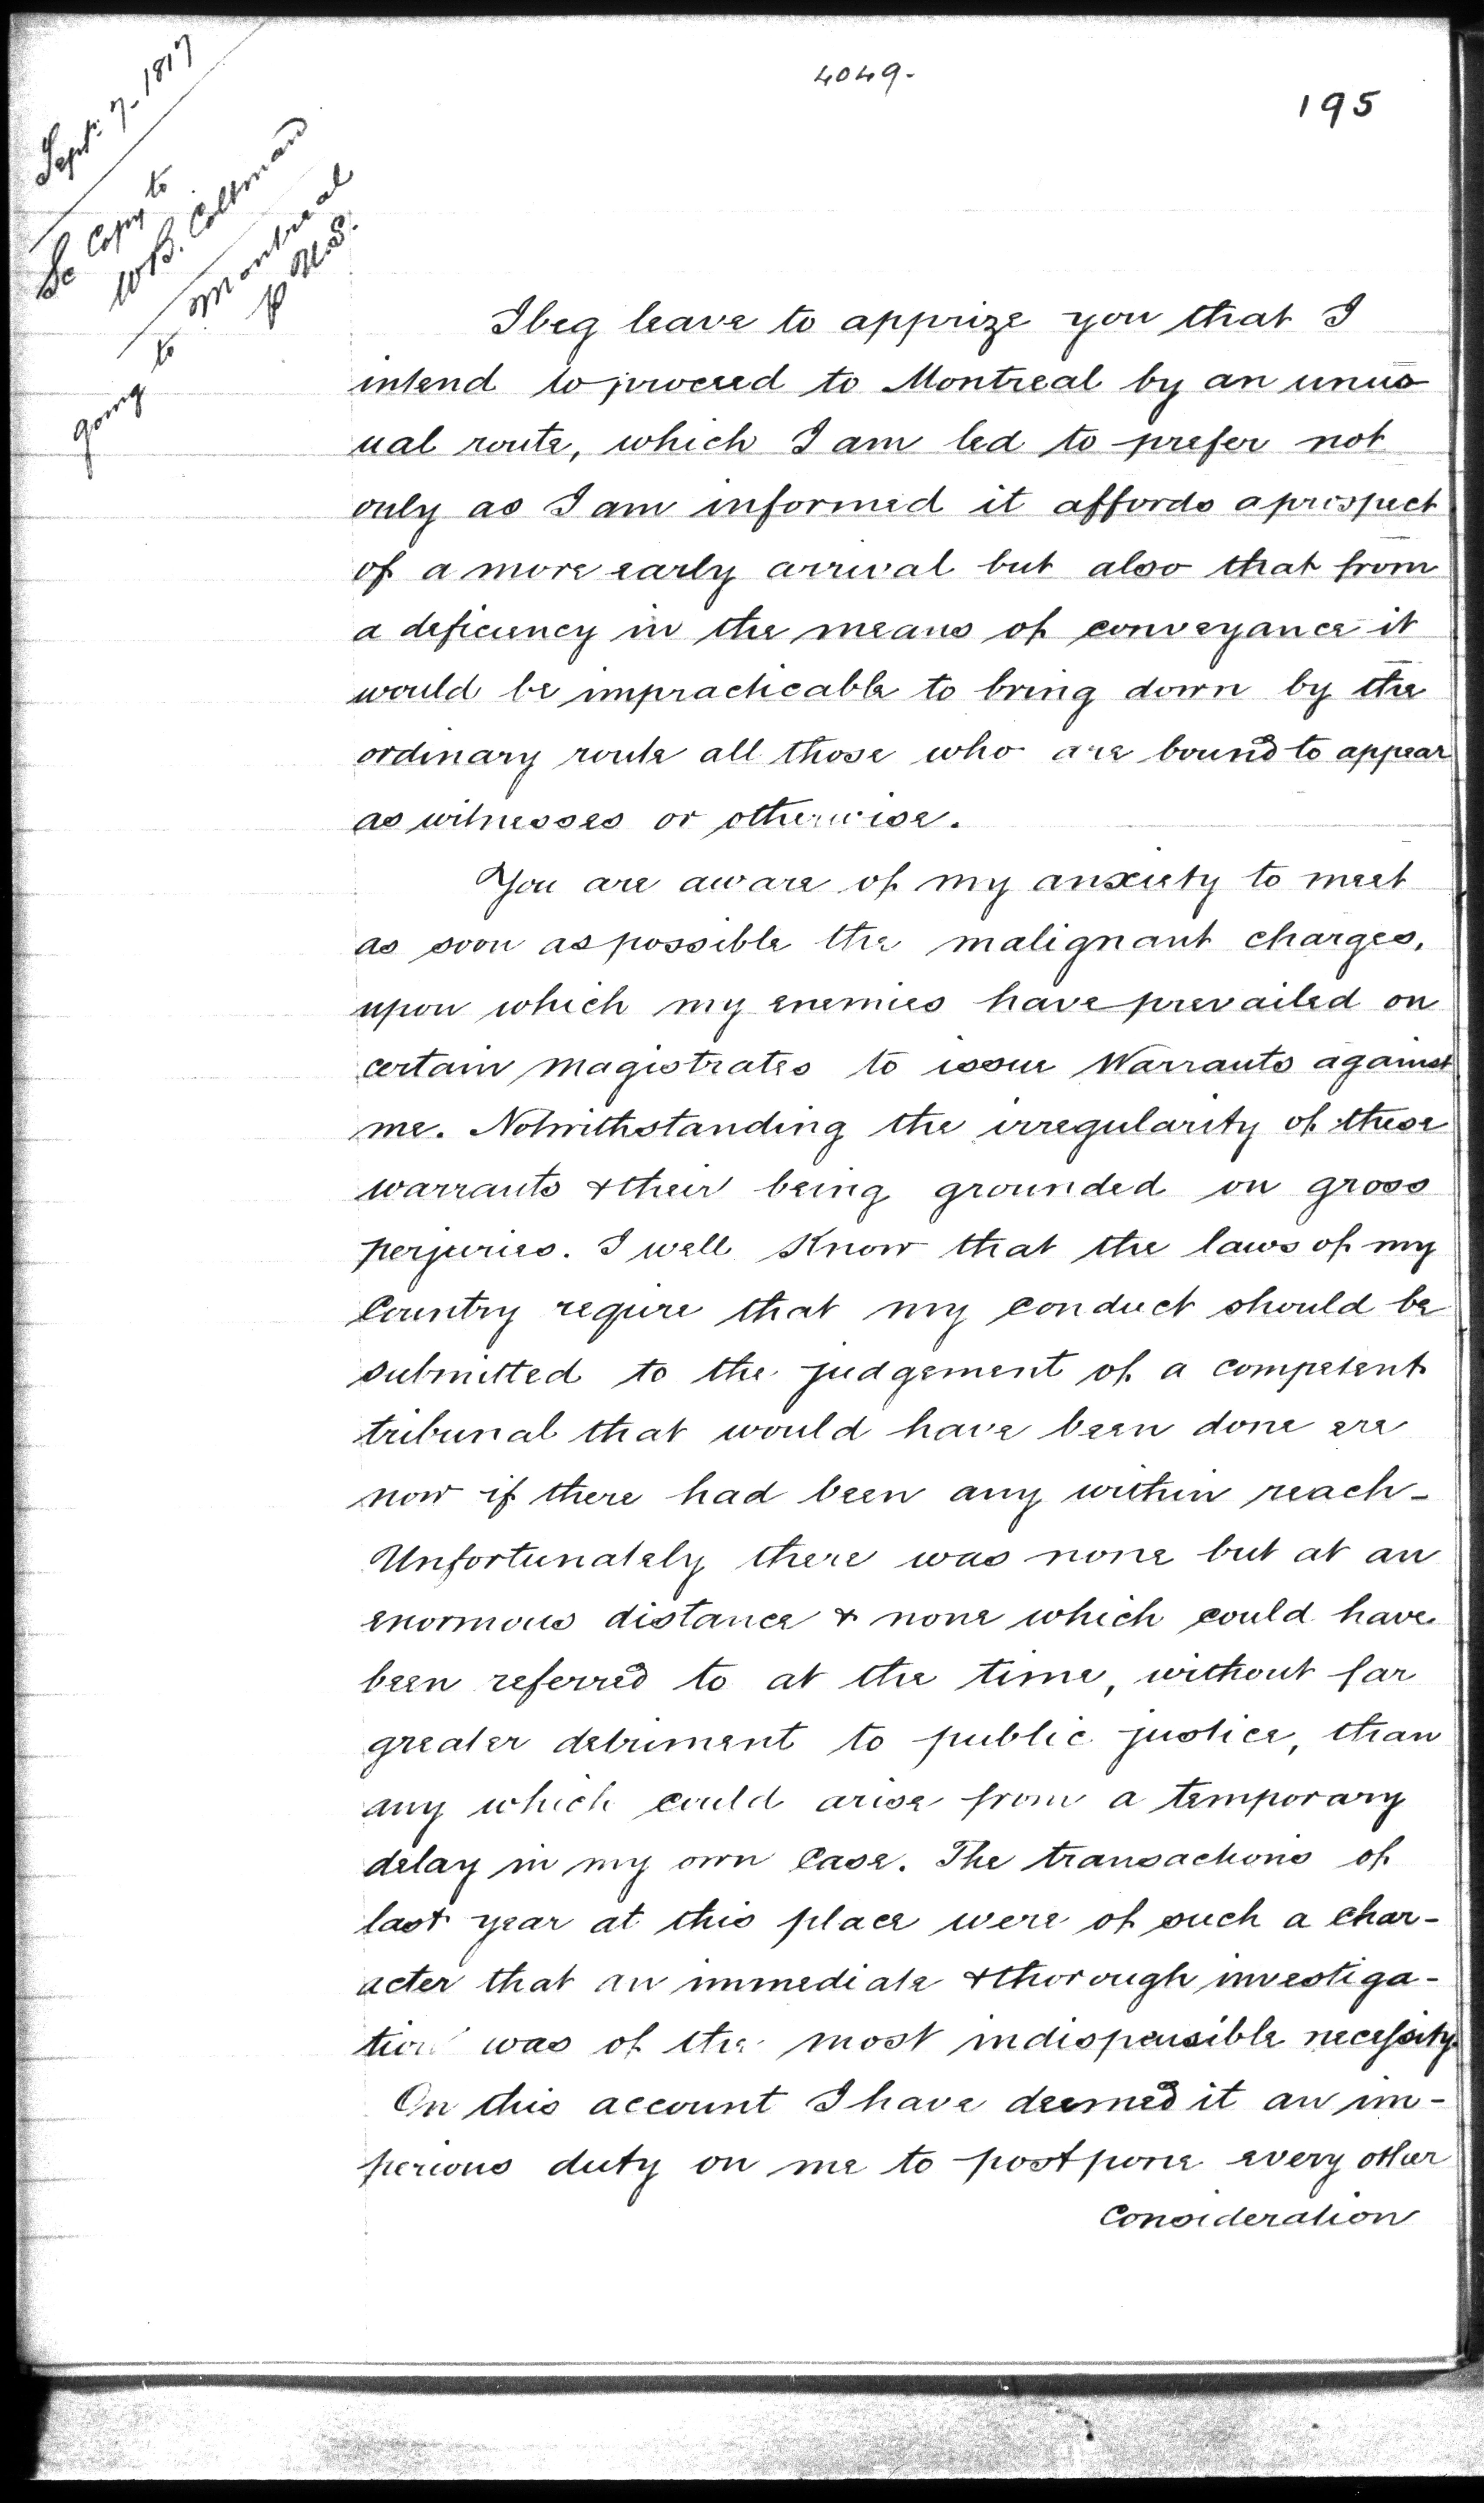 4049.
195
Sept: 7. 1817
Sc Copy to
W B. Coltman
going to Montreal
p U.S.
I beg leave to apprize you that I
intend to proceed to Montreal by an unus
ual route, which I am led to prefer not
only as I am informed it affords a prospect
of a more early arrival but also that from
a deficiency in the means of conveyance it
would be impracticable to bring down by the
ordinary route all those who are bound to appear
as witnesses or otherwise.
You are aware of my anxiety to meet
as soon as possible the malignant charges,
upon which my enemies have prevailed on
certain Magistrates to issue Warrants against
me. Notwithstanding the irregularity of these
warrants & their being grounded on gross
perjuries. I well Know that the laws of my
Country requre that my conduct should be
submitted to the judgement of a competent
tribunal that would have been done ere
now if there had been any within reach-
Unfortunately there was none but at an
enormous distance & none which could have
been referred to at the time, without far
greater detriment to public justice, than
any which could arise from a temporary
delay in my own Case. The transactions of
last year at this place were of such a char-
acter that an immediate & thorough investiga-
tion was of the most indispensible necessity.
On this account I have deemed it an im-
perious duty on me to postpone every other
Consideration